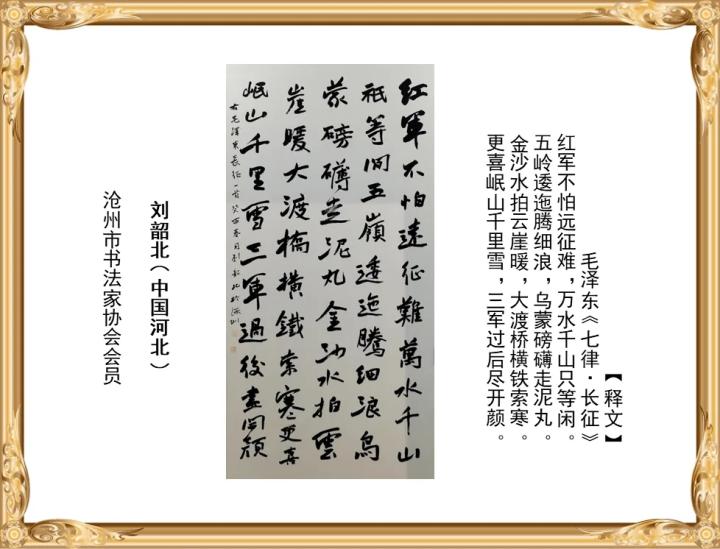 【释文】
毛泽东《七律·长征》
红军不怕远征难，万水千山只等闲。
五岭逶迤腾细浪，乌蒙磅礴走泥丸。
金沙水拍云崖暖，大渡桥横铁索寒。
更喜岷山千里雪，三军过后尽开颜。
红軍不怕遠征難萬水千山
祇等闲五嶺逶迤騰细浪烏
蒙磅礴走泥丸金沙水拍雲
崖暖大渡橋横鐵索寒更喜
岷山千里雪三軍過後盡開颜
右毛澤東長征一首 春月刘韶北於滄州
刘韶北（中国河北）
沧州市书法家协会会员